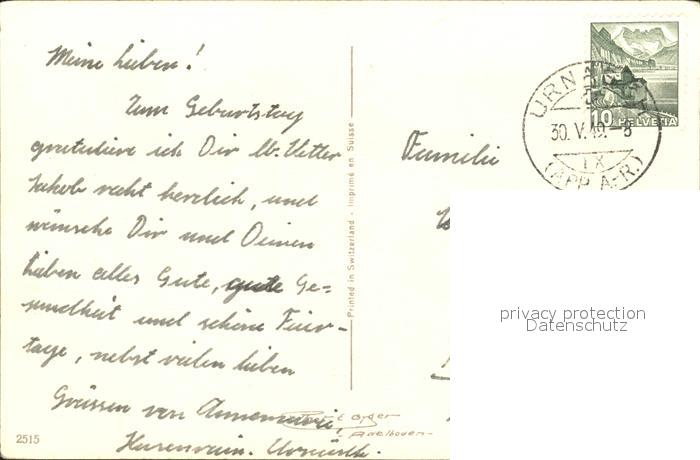 Meine Lieben!
Zum Geburtstag
gratuliere ich Dir lb. Vetter
Jakob recht herzlich, und
wünsche Dir und Deinen
lieben alles Gute, gute Ge-
sundheit und schöne Feier-
tage, nebst vielen lieben
Grüssen von Annemarie,
Urnäsch.
2515
Printed in Switzerland - Imprimé en Suisse
Adelboden
Familie
URN
30. V. 49. - 8
IX
(APP. A.-R.)
10 HELVETIA
privacy protection
Datenschutz